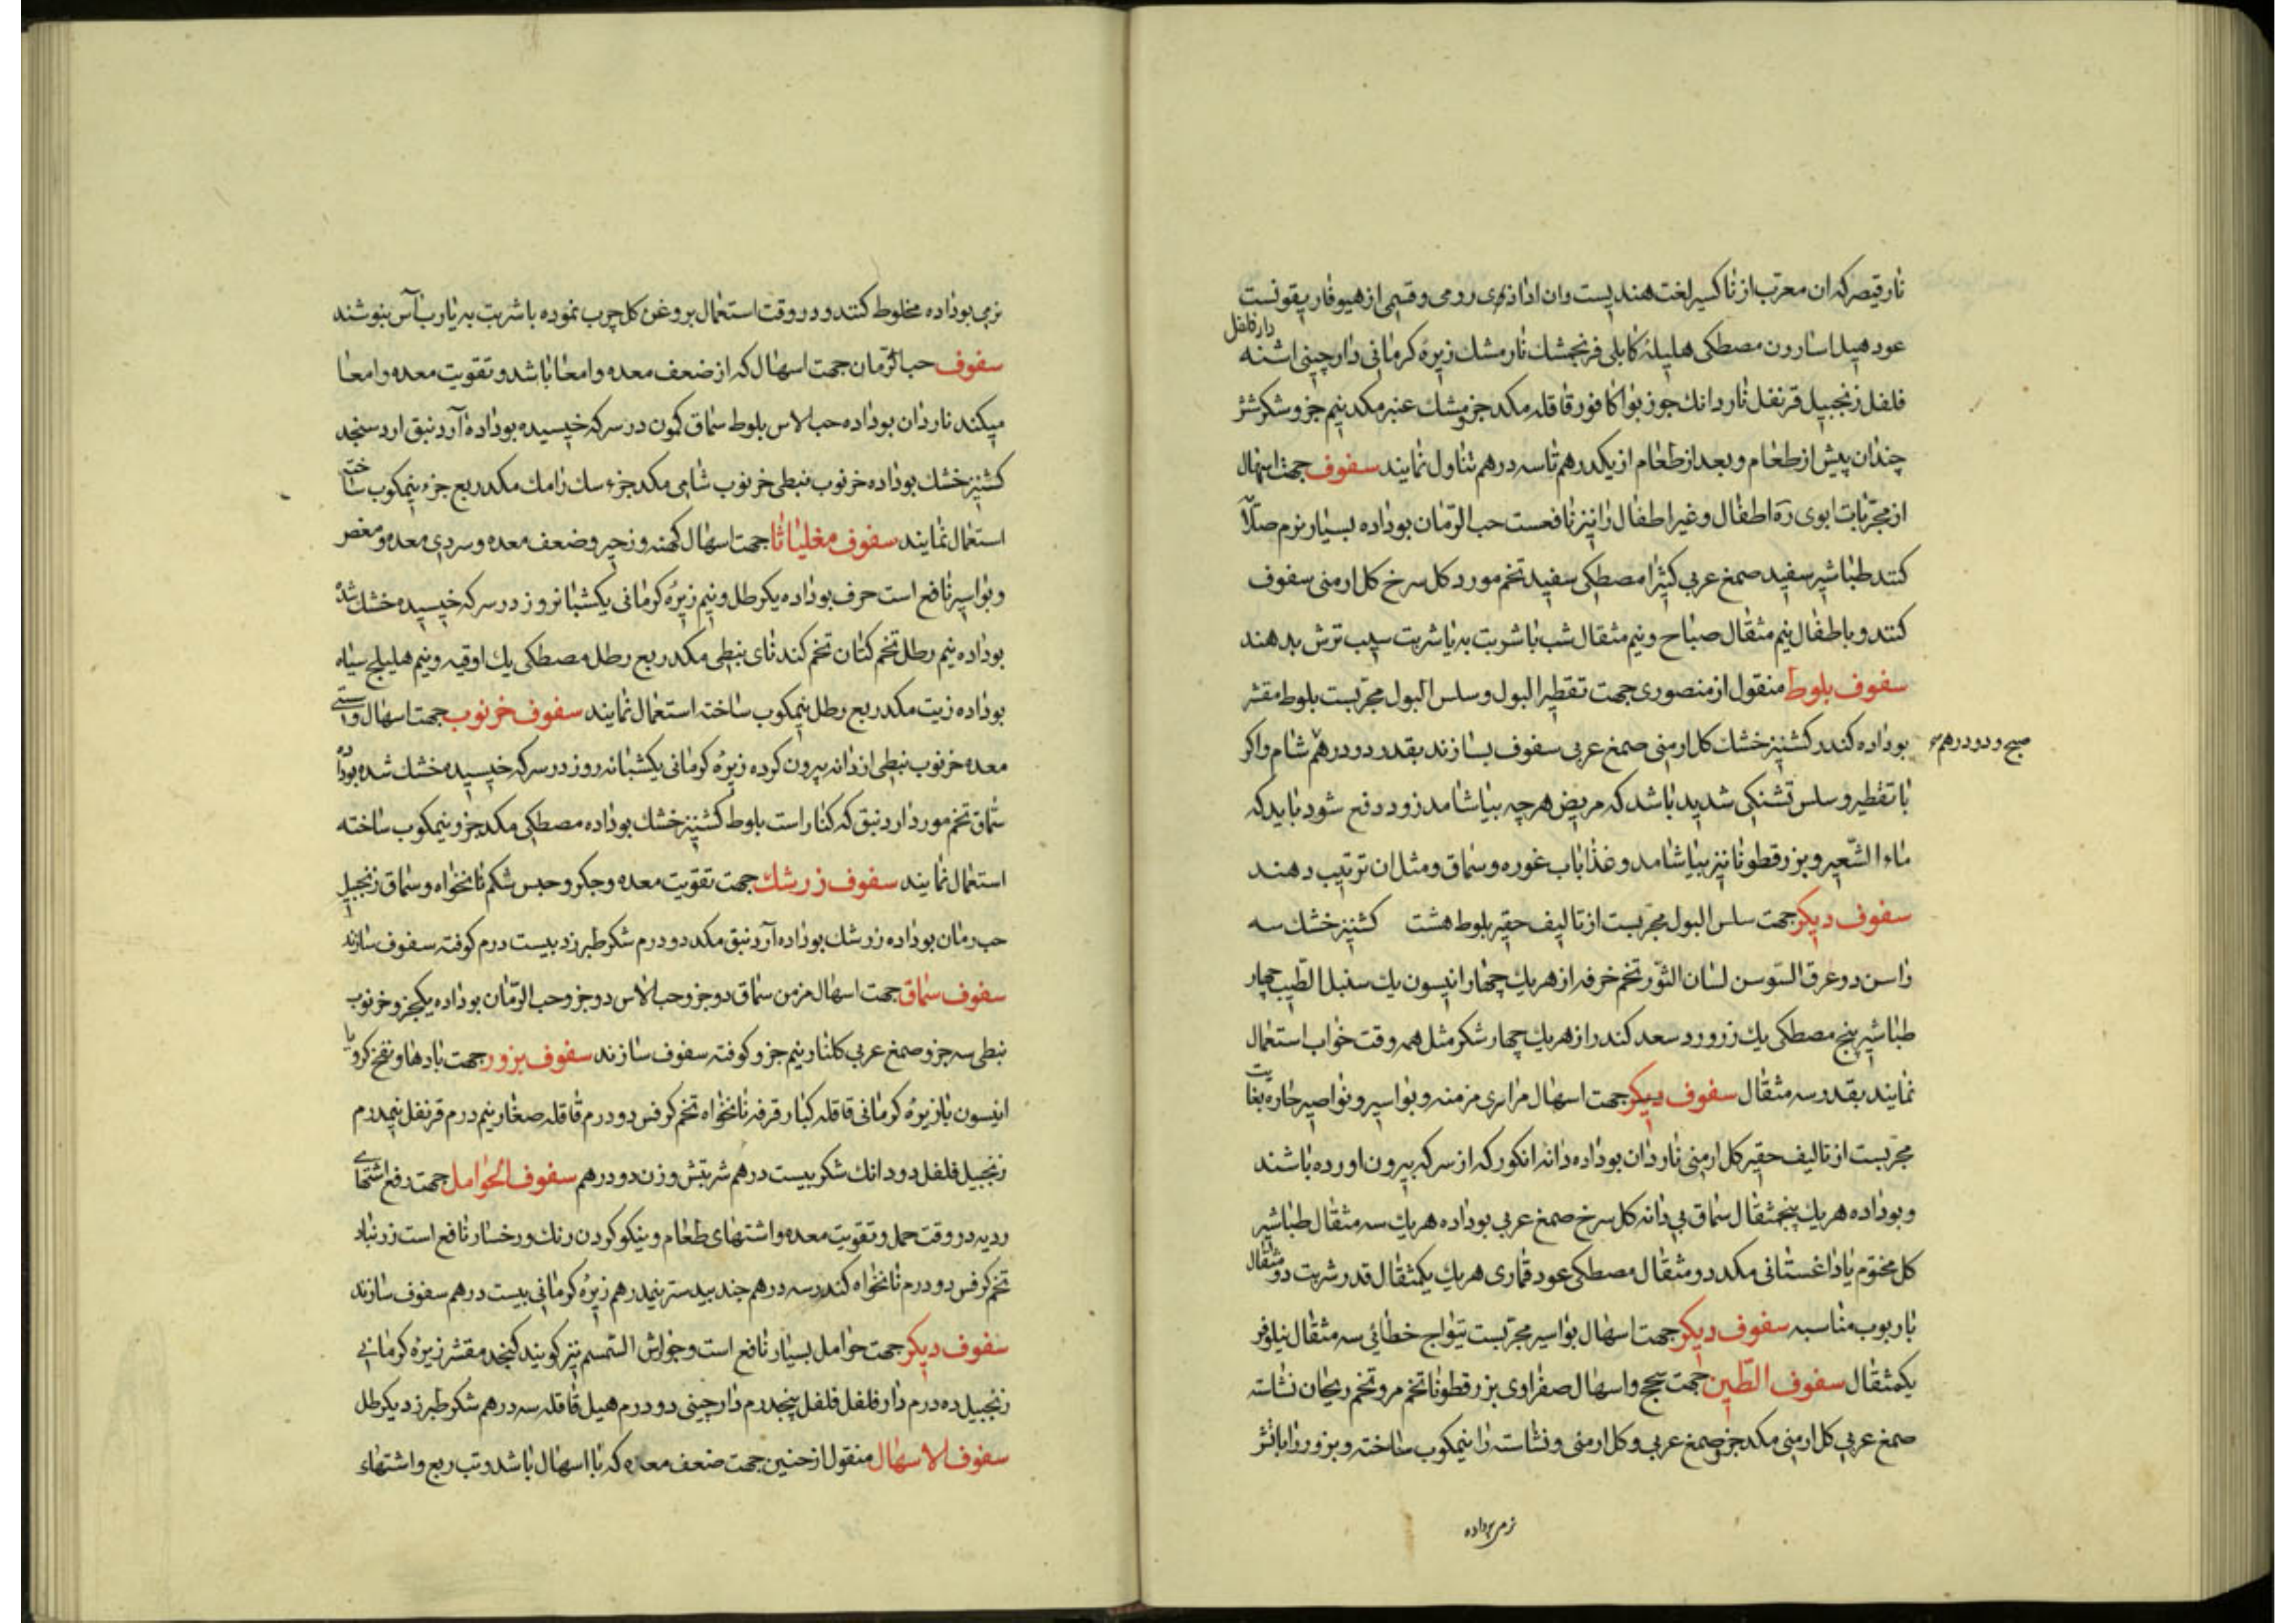 نارقیصر که ان معرب از ناکسیر لغت هندیست وان اذا ذهی رومی و قسمی از هیوفاریقونست
عود هیل اسارون مصطکی هلیلهٔ کابلی فرنجمشك نارمشك زیرهٔ کرمانی دارچینی اشنه
دار فلفل
فلفل زنجبیل قرنفل ناردانك جوزبوا کافور قاقله مکد جزو مشك عنبر مکد نیم جزو شکر شش
چندان پیش از طعام و بعد از طعام از یکدرهم تا سه درهم تناول نمایند سفوف جهت اسهال
از مجربات ابوی ره اطفال و غیر اطفال را نیز نافعست حب الرمان بوداده بسیار نرم صلا
کنند طباشیر سفید صمغ عربی کثیرا مصطکی سفید تخم مورد کل سرخ کل ارمنی سفوف
کنند و باطفال نیم مثقال صباح و نیم مثقال شب با شربت به یا شربت سیب ترش بدهند
سفوف بلوط منقول از منصوری جهت تقطیر البول و سلس البول مجربست بلوط مقشر
بوداده کندر کشنیز خشك کل ارمنی صمغ عربی سفوف بسازند بقدر دو درهم شام واکر
صبح و دو درهم
با تقطیر و سلس تشنکی شدید باشد که مریض هرچه بیاشامد زود دفع شود باید که
ماء الشعیر و بزرقطونا نیز بیاشامد و غذا باب غوره و سماق و مثل ان ترتیب دهند
سفوف دیکر جهت سلس البول مجربست از تالیف حقیر بلوط هشت کشنیز خشك سه
راسن دو عرق السوسن لسان الثور تخم خرفه از هریك چهار انیسون یك سنبل الطیب چهار
طباشیر پنج مصطکی یك زرورد سعد کندر از هریك چهار شکر مثل همه وقت خواب استعمال
نمایند بقدر سه مثقال سفوف دیکر جهت اسهال مراری مزمنه و بواسیر و نواصیر حاره بغایت
مجربست از تالیف حقیر کل ارمنی ناردان بوداده دانه انکور که از سرکه بیرون اورده باشند
و بوداده هریك پنجمثقال سماق بی دانه کل سرخ صمغ عربی بوداده هریك سه مثقال طباشیر
کل مختوم یا داغستانی مکد دو مثقال مصطکی عود قماری هریك یکمثقال قدر شربت دو مثقال
با ربوب مناسبه سفوف دیکر جهت اسهال بواسیر مجربست تیواج خطائی سه مثقال نیلوفر
یکمثقال سفوف الطین جهت سحج و اسهال صفراوی بزرقطونا تخم مرو تخم ریحان نشاسته
صمغ عربی کل ارمنی مکد جزو صمغ عربی و کل ارمنی و نشاسته را نیمکوب ساخته و بزور را با نشر
نرمی بوداده
نرمی بوداده مخلوط کنند و در وقت استعمال بروغن کل چرب نموده با شربت به یا رب آس بنوشند
سفوف حب الرمان جهت اسهال که از ضعف معده و امعا باشد و تقویت معده و امعا
میکند ناردان بوداده حب الاس بلوط سماق کمون در سرکه خیسیده بوداده آرد نبق ارد سنجد
کشنیز خشك بوداده خرنوب نبطی خرنوب شامی مکد جزء سك رامك مکد ربع جزء نیمکوب ساخته
استعمال نمایند سفوف مغلیاثا جهت اسهال کهنه و زحیر و ضعف معده و سردی معده و مغص
و بواسیر نافع است حرف بوداده یکرطل و نیم زیرهٔ کرمانی یکشبانروز در سرکه خیسیده خشك شده
بوداده نیم رطل تخم کتان تخم کندنای نبطی مکد ربع رطل مصطکی یك اوقیه و نیم هلیلج سیاه
بوداده زیت مکد ربع رطل نیمکوب ساخته استعمال نمایند سفوف خرنوب جهت اسهال و سستی
معده خرنوب نبطی از دانه بیرون کرده زیرهٔ کرمانی یکشبانه روز در سرکه خیسیده خشك شده بوداده
سماق تخم مورد ارد نبق که کنار است بلوط کشنیز خشك بوداده مصطکی مکد جزو نیمکوب ساخته
استعمال نمایند سفوف زرشك جهت تقویت معده و جکر و حبس شکم نانخواه و سماق زنجبیل
حب رمان بوداده زرشك بوداده آرد نبق مکد دو درم شکر طبرزد بیست درم کوفته سفوف سازند
سفوف سماق جهت اسهال مزمن سماق دو جزو حب الاس دو جزو حب الرمان بوداده یکجزو خرنوب
نبطی سه جزو صمغ عربی کلنار نیم جزو کوفته سفوف سازند سفوف بزور جهت بادها و نفخ کرویا
انیسون نازیره کرمانی قاقله کبار قرفه نانخواه تخم کرفس دو درم قاقله صغار نیم درم قرنفل نیمدرم
زنجبیل فلفل دو دانك شکر بیست درهم شربتش وزن دو درهم سفوف الحوامل جهت رفع اشتهای
ردیه در وقت حمل و تقویت معده و اشتهای طعام و نیکو کردن رنك و رخسار نافع است زرنباد
تخم کرفس دو درم نانخواه کندر سه درهم جند بیدستر نیمدرهم زیرهٔ کرمانی بیست درهم سفوف سازند
سفوف دیکر جهت حوامل بسیار نافع است و جوارش السمسم نیز کویند کنجد مقشر زیرهٔ کرمانی
زنجبیل ده درم دارفلفل فلفل پنجدرم دارچینی دو درم هیل قاقله سه درهم شکر طبرزد یکرطل
سفوف الاسهال منقول از حنین جهت ضعف معده که با اسهال باشد و تب ربع و اشتهاء